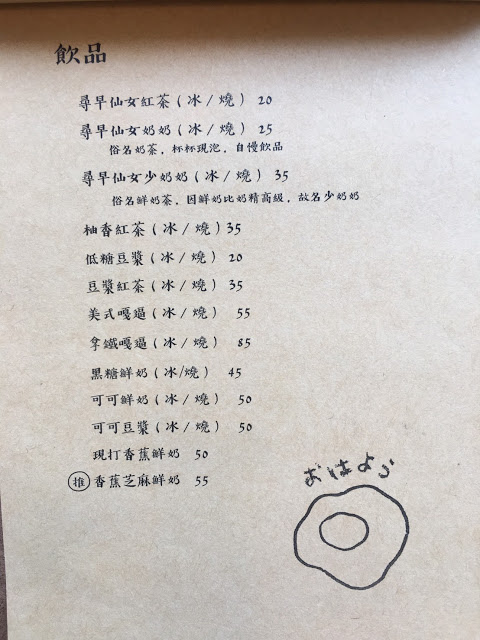 飲品
尋早仙女紅茶(冰/燒) 20
尋早仙女奶奶(冰/燒) 25
俗名奶茶，杯杯現泡，自慢飲品
尋早仙女少奶奶(冰/燒) 35
俗名鮮奶茶，因鮮奶比奶精高級，故名少奶奶
柚香紅茶(冰/燒)35
低糖豆漿(冰/燒) 20
豆漿紅茶(冰/燒) 35
美式嘎逼(冰/燒) 55
拿鐵嘎逼(冰/燒) 85
黑糖鮮奶(冰/燒) 45
可可鮮奶(冰/燒) 50
可可豆漿(冰/燒) 50
現打香蕉鮮奶 50
推 香蕉芝麻鮮奶 55
おはよう